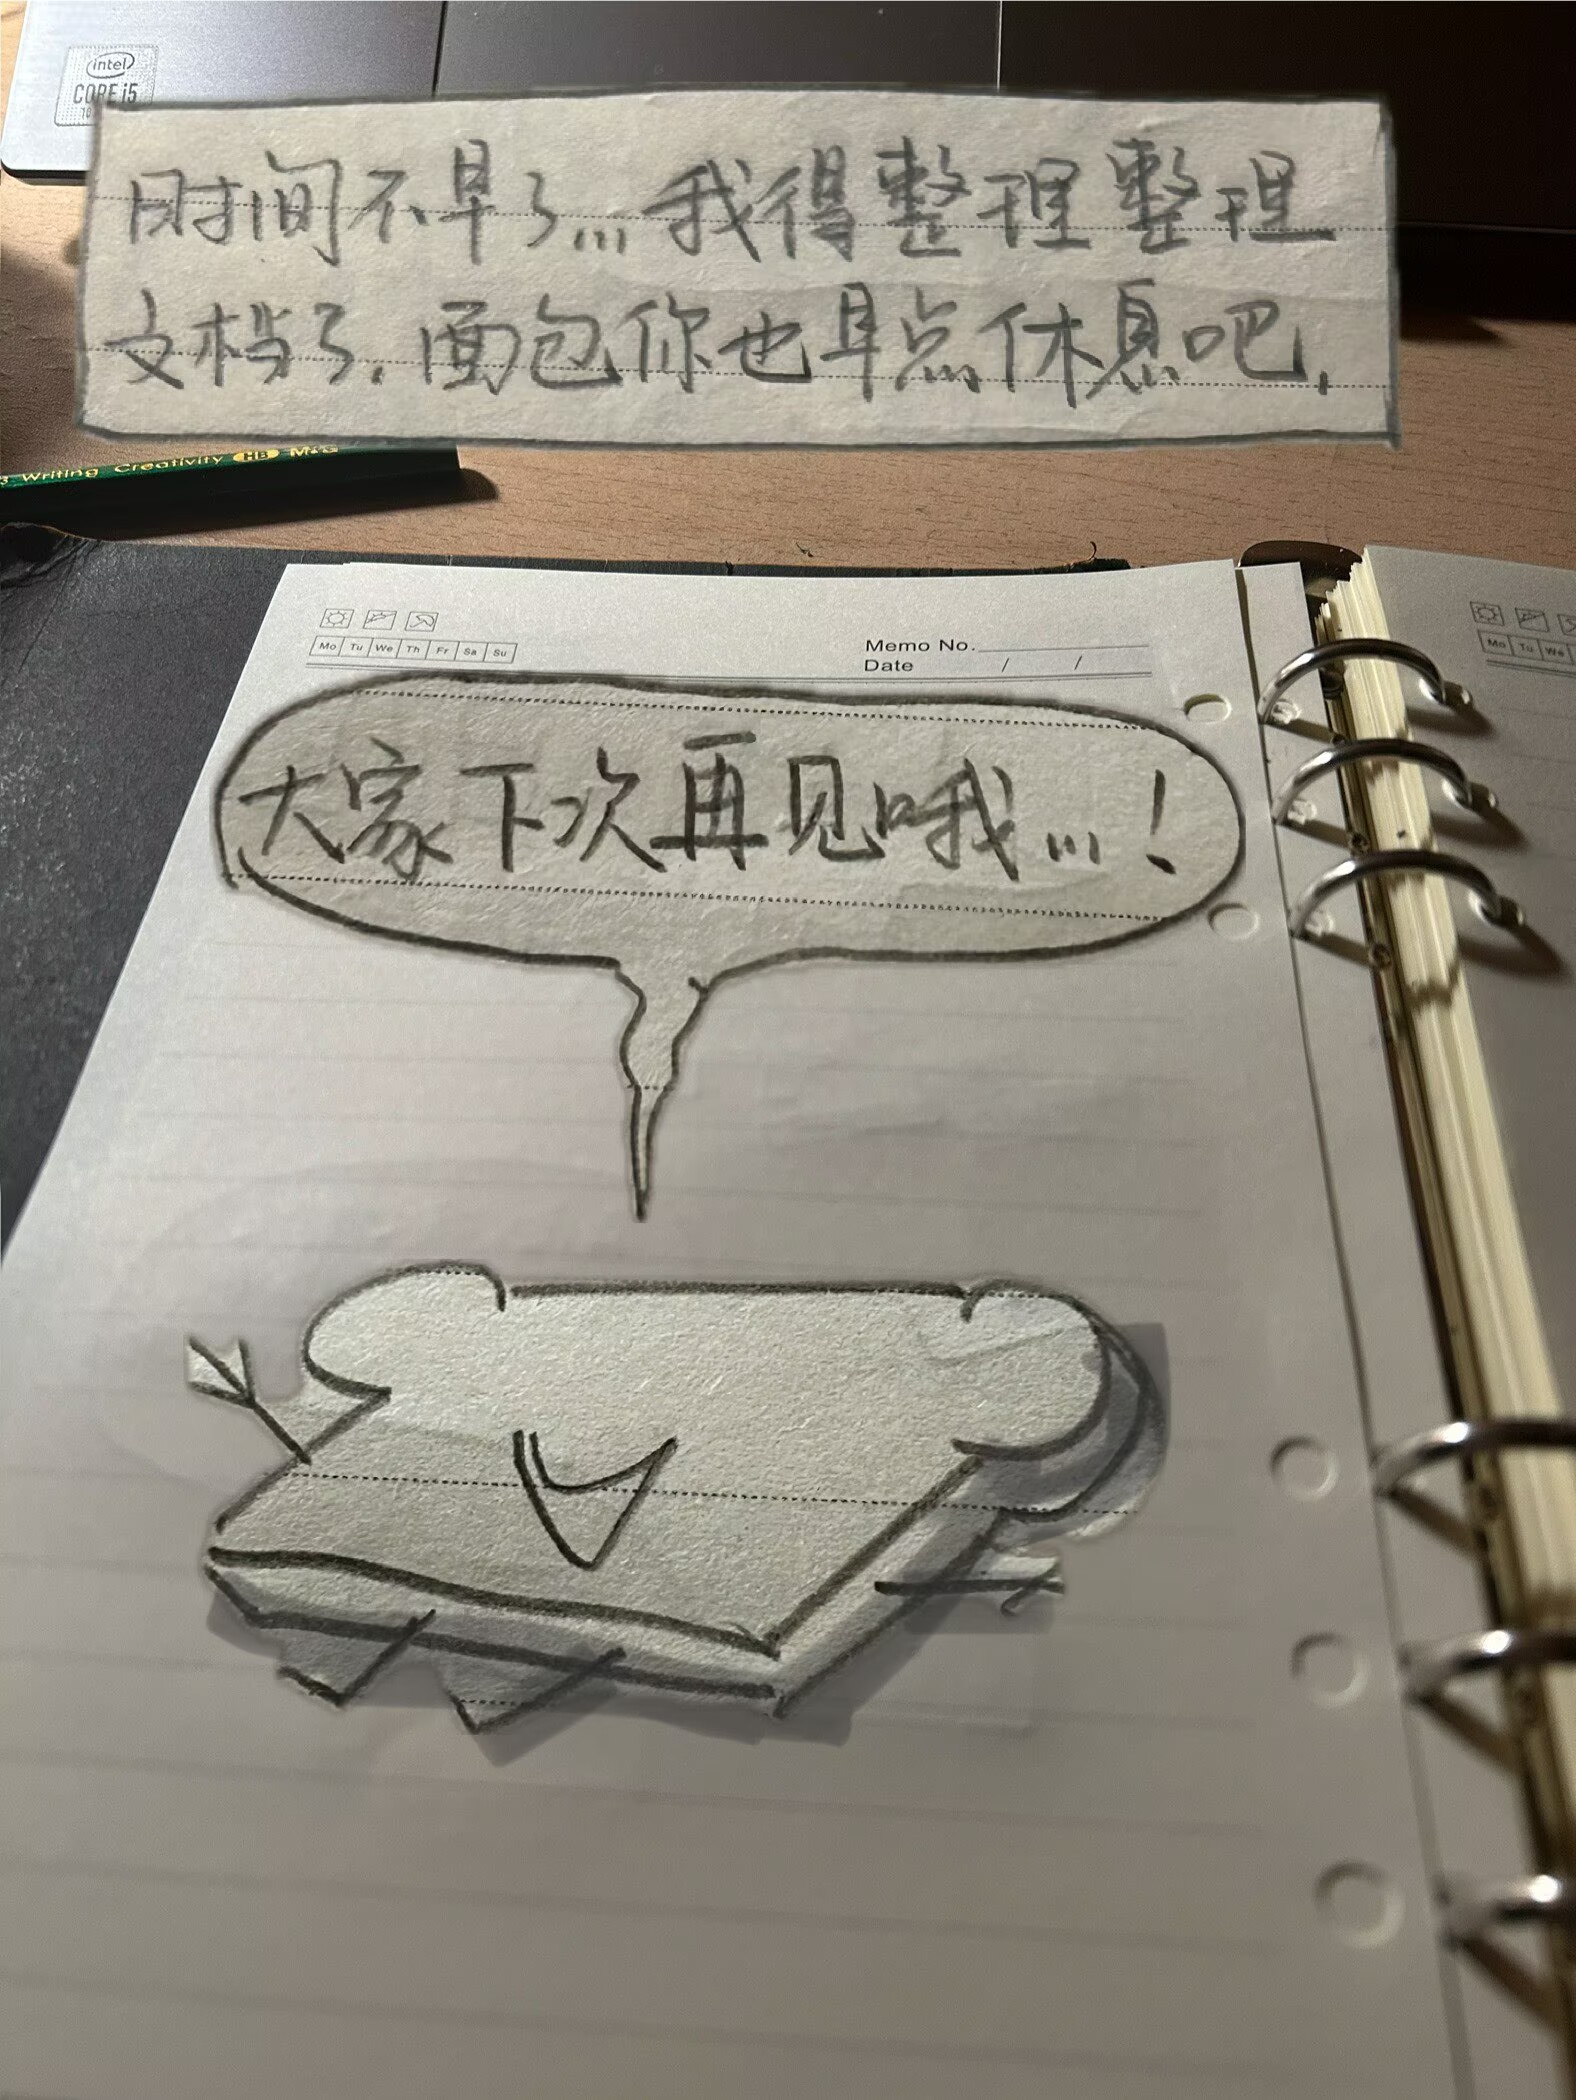 intel
CORE i5
时间不早了... 我得整理整理
文档了. 面包你也早点休息吧.
Writing Creativity HB M&G
Mo Tu We Th Fr Sa Su
Memo No.
Date / /
Mo Tu We
大家下次再见哦...!